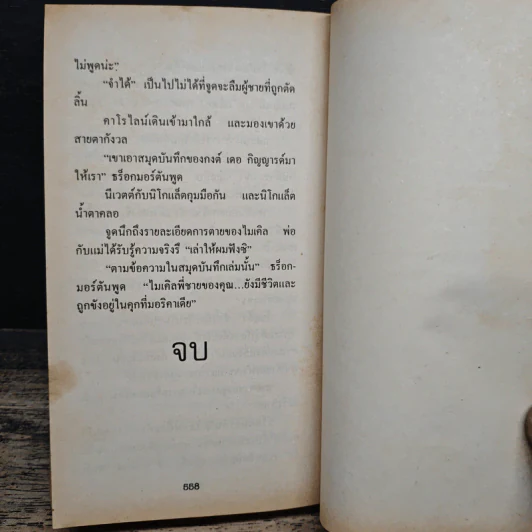 ไม่พูดน่ะ"
"จำได้" เป็นไปไม่ได้ที่จูดจะลืมผู้ชายที่ถูกตัด
ลิ้น
คาโรไลน์เดินเข้ามาใกล้ และมองเขาด้วย
สายตากังวล
"เขาเอาสมุดบันทึกของกงต์ เดอ กิญญารด์มา
ให้เรา" ธร็อกมอร์ตันพูด
นีเวตต์กับนิโกแล็ตกุมมือกัน และนิโกแล็ต
น้ำตาคลอ
จูดนึกถึงรายละเอียดการตายของไมเคิล พ่อ
กับแม่ได้รับรู้ความจริงรึ "เล่าให้ผมฟังซิ"
"ตามข้อความในสมุดบันทึกเล่มนั้น" ธร็อก-
มอร์ตันพูด "ไมเคิลพี่ชายของคุณ...ยังมีชีวิตและ
ถูกขังอยู่ในคุกที่มอริคาเดีย"
จบ
558